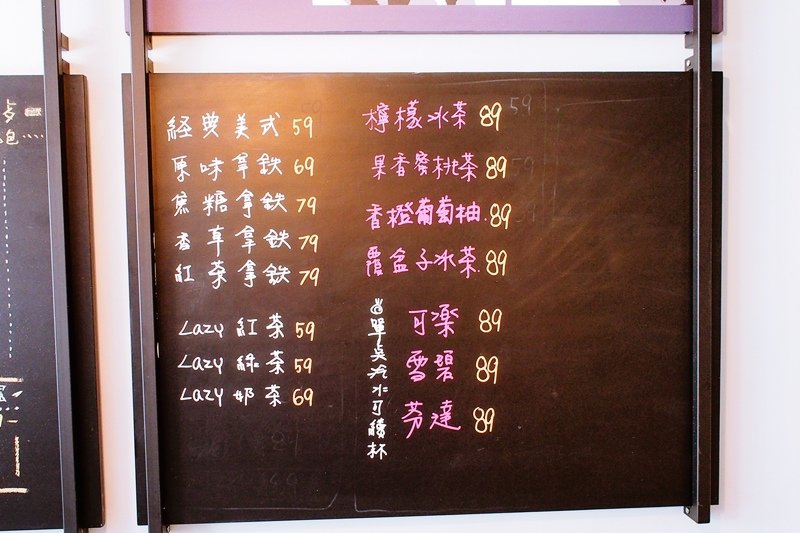 経典美式 59
原味拿鉄 69
焦糖拿鉄 79
香草拿鉄 79
紅茶拿鉄 79
Lazy 紅茶 59
Lazy 綠茶 59
Lazy 奶茶 69
檸檬冰茶 89
果香蜜桃茶 89
香橙葡萄柚.89
覆盆子冰茶.89
單点汽水可續杯
可樂 89
雪碧 89
芬達 89